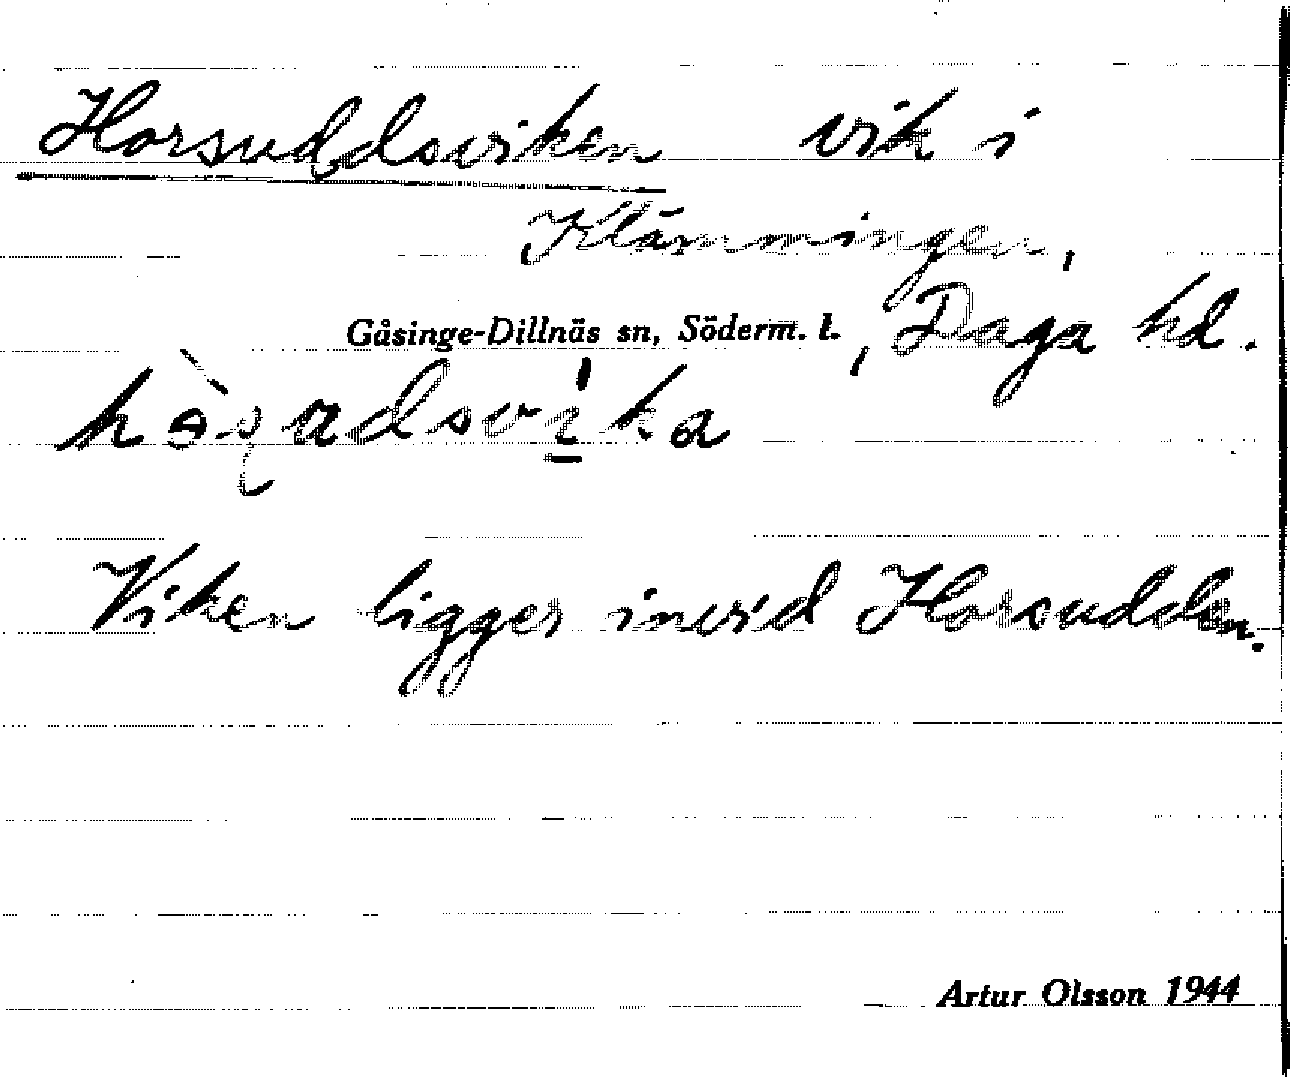 Horsuddsviken vik i
Klämmingen,
Gåsinge-Dillnäs sn, Söderm. l., Daga hd.
Viken ligger invid Horsudden.
Artur Olsson 1944